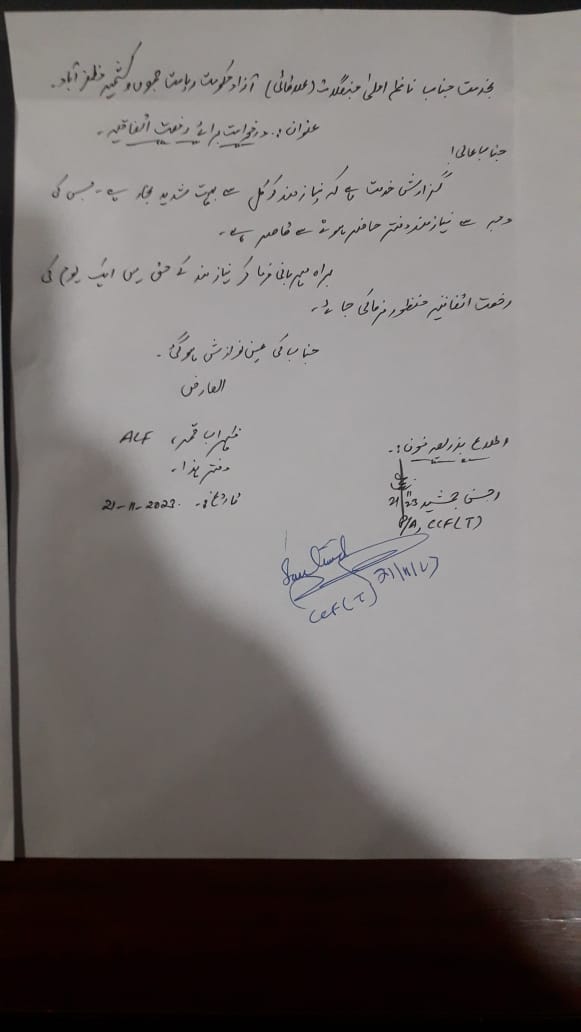 بخدمت جناب ناظم اعلیٰ جنگلات (علاقائی) آزاد حکومت ریاست جموں و کشمیر مظفرآباد۔
عنوان:۔ درخواست برائے رخصت اتفاقیہ۔
جناب عالی!
گزارش خدمت ہے کہ نیازمند کو کل سے بہت شدید بخار ہے۔ جس کی
وجہ سے نیازمند دفتر حاضر ہونے سے قاصر ہے۔
براہ مہربانی فرما کر نیازمند کے حق میں ایک یوم کی
رخصت اتفاقیہ منظور فرمائی جائے۔
جناب کی عین نوازش ہوگی۔
العارض
قمر، ACF
دفتر ہذا۔
تاریخ:۔ 21-11-2023.
اطلاع بذریعہ فون:۔
جمشید 21/11/23
P/A, CCF(T)
CCF(T) 21/11/23